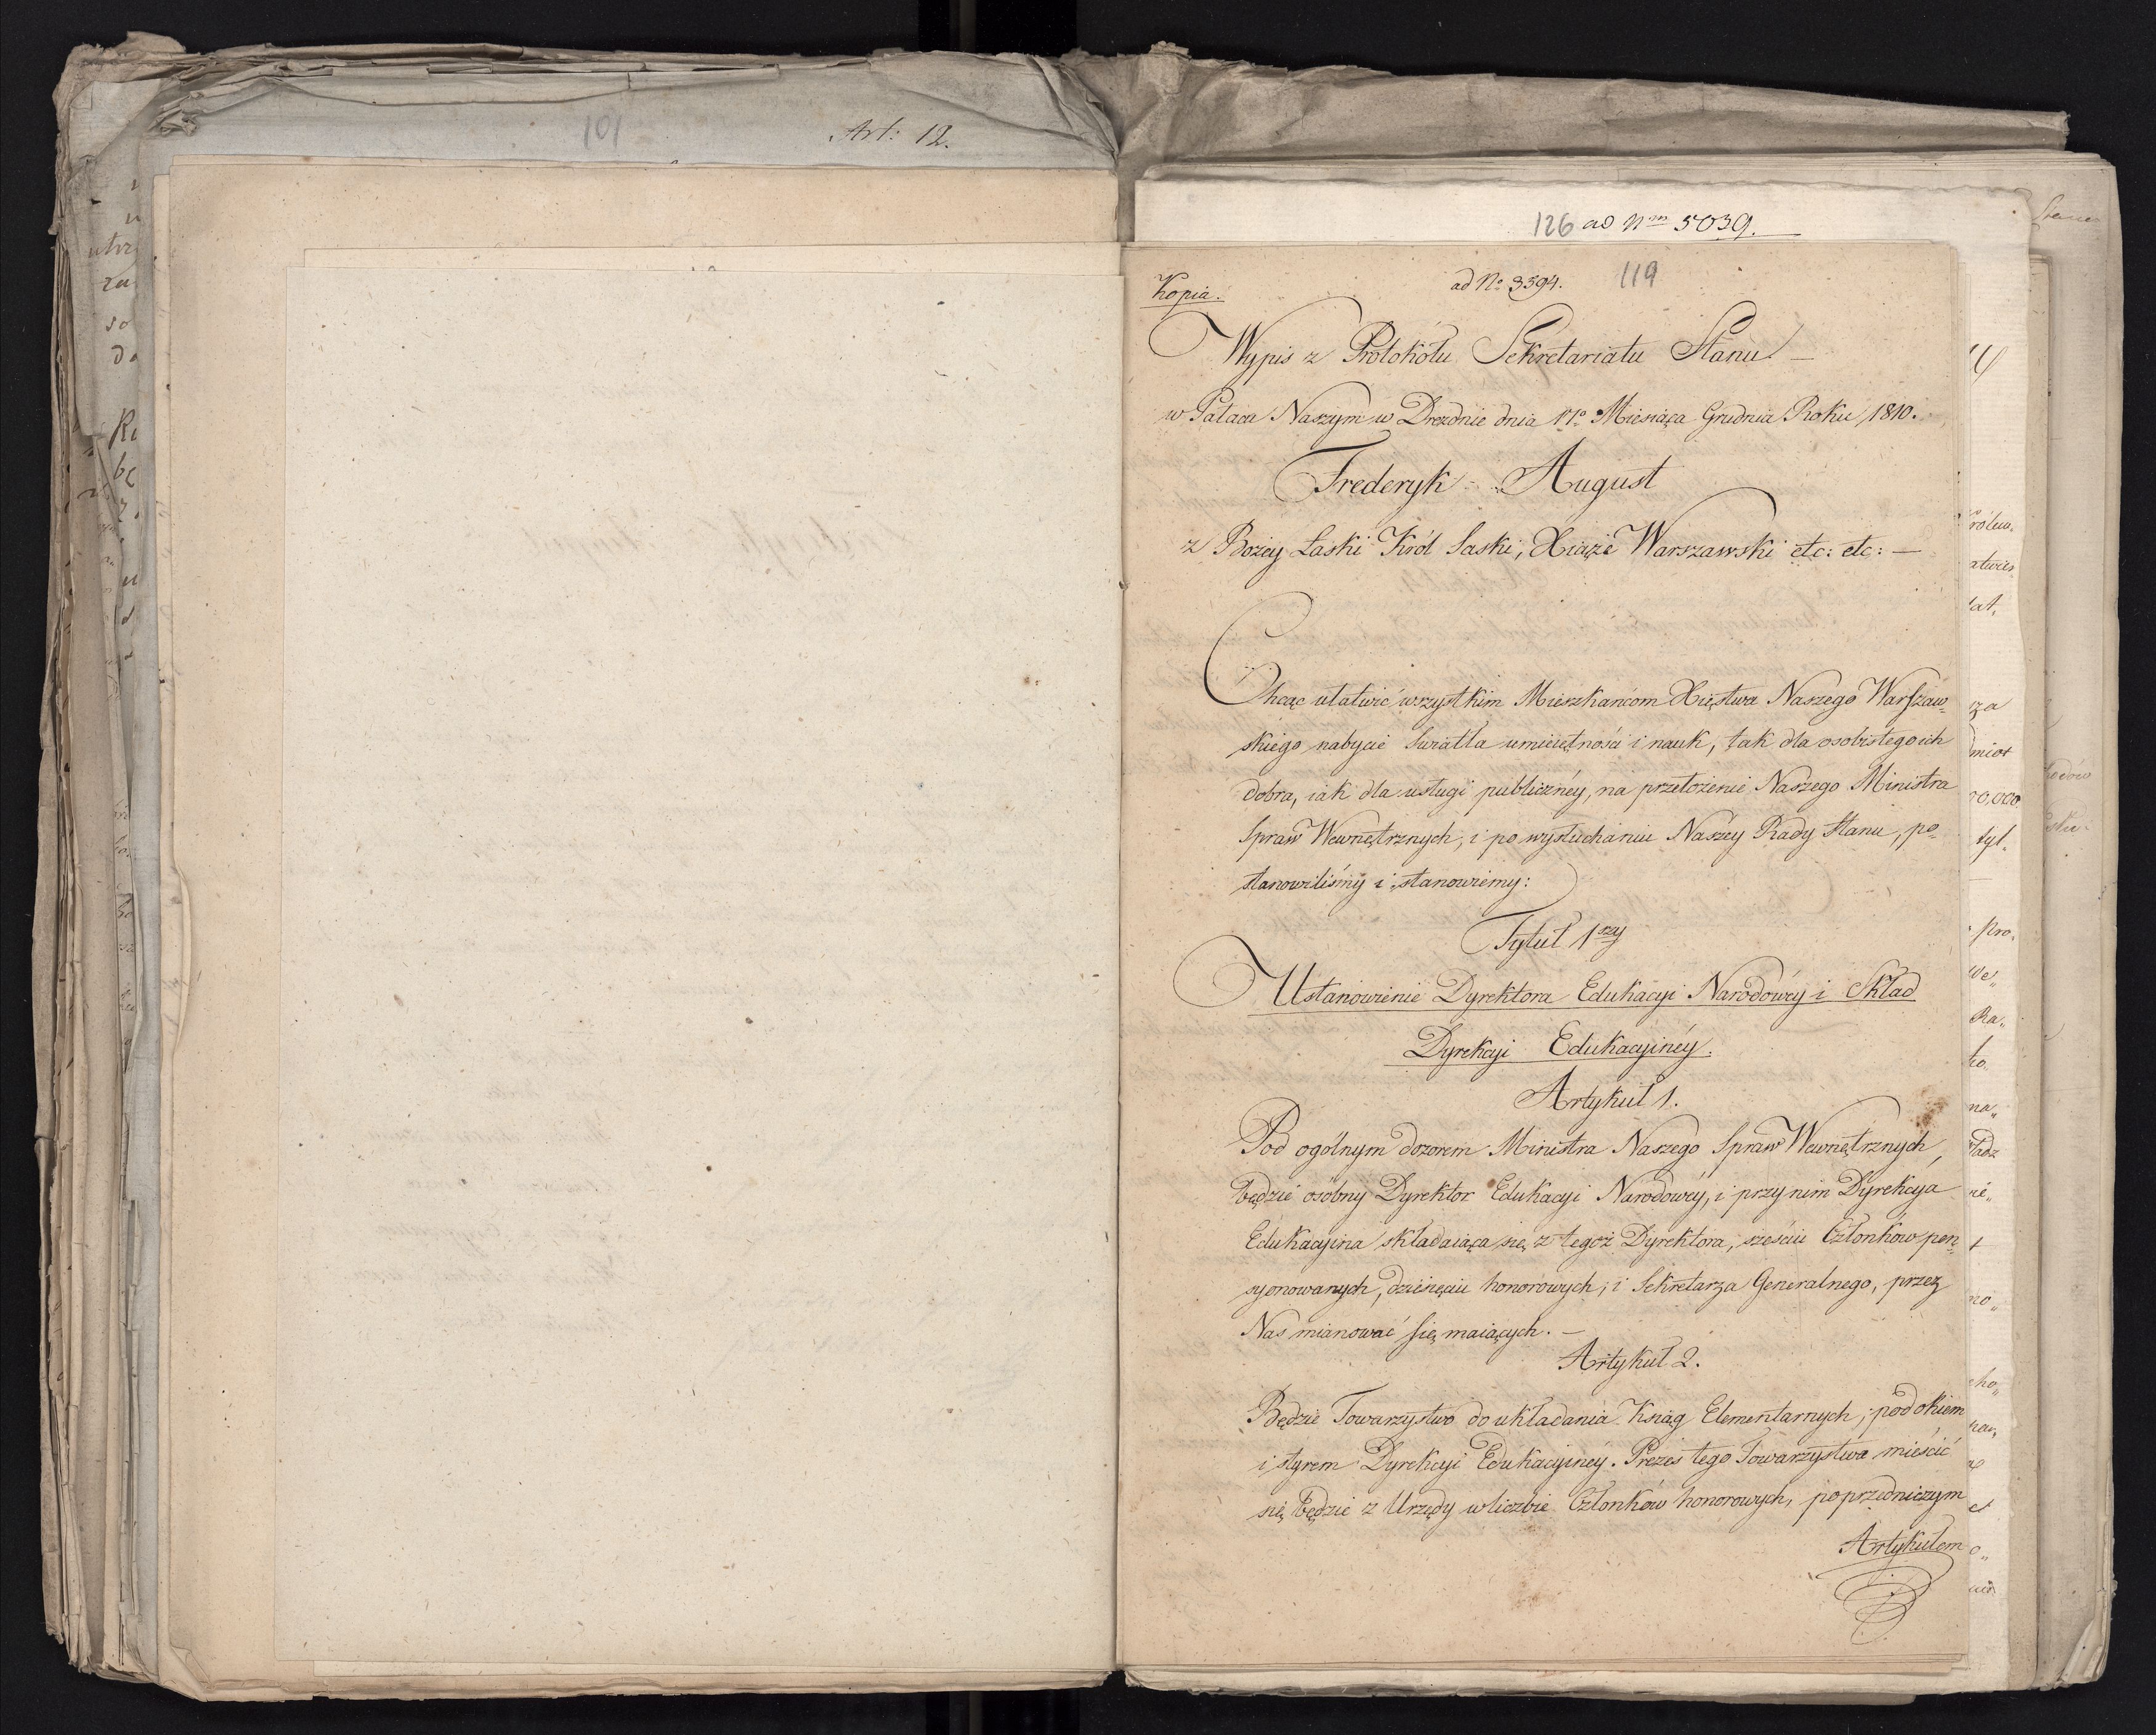 101
Art: 12.
126 ad Nrm 5039.
Kopia.
ad No 3394. 119
Wypis z Protokółu Sekretariatu Stanu —
w Pałacu Naszym w Dreznie dnia Miesiąca Grudnia Roku 1810.
Frederyk August
z Bożey Łaski Król Saski, Xiąże Warszawski etc: etc: —
Chcąc ułatwić wszystkim Mieszkańcom Xięstwa Naszego Warszaw-
skiego nabycie światła umieiętności i nauk, tak dla osobistego ich
dobra, iak dla usługi publicznéy, na przełożenie Naszego Ministra
Spraw Wewnętrznych, i po wysłuchaniu Naszéy Rady Stanu, po-
stanowiliśmy i stanowiemy:
Tytuł 1szy
Ustanowienie Dyrektora Edukacyi Narodowéy i Skład
Dyrekcyi Edukacyinéy.
Artykuł 1.
Pod ogólnym dozorem Ministra Naszego Spraw Wewnętrznych,
będzie osóbny Dyrektor Edukacyi Narodowéy, i przy nim Dyrekcya
Edukacyina składaiąca się z tegoż Dyrektora, sześciu Członków pen-
syonowanych, dziesięciu honorowych, i Sekretarza Generalnego, przez
Nas mianować się maiących. —
Artykuł 2.
Będzie Towarzystwo do układania Ksiąg Elementarnych, pod okiem
i styrem Dyrekcyi Edukacyinéy. Prezes tego Towarzystwa mieścić
się będzie z Urzędy w liczbie Członków honorowych, poprzedniczym
Artykułem